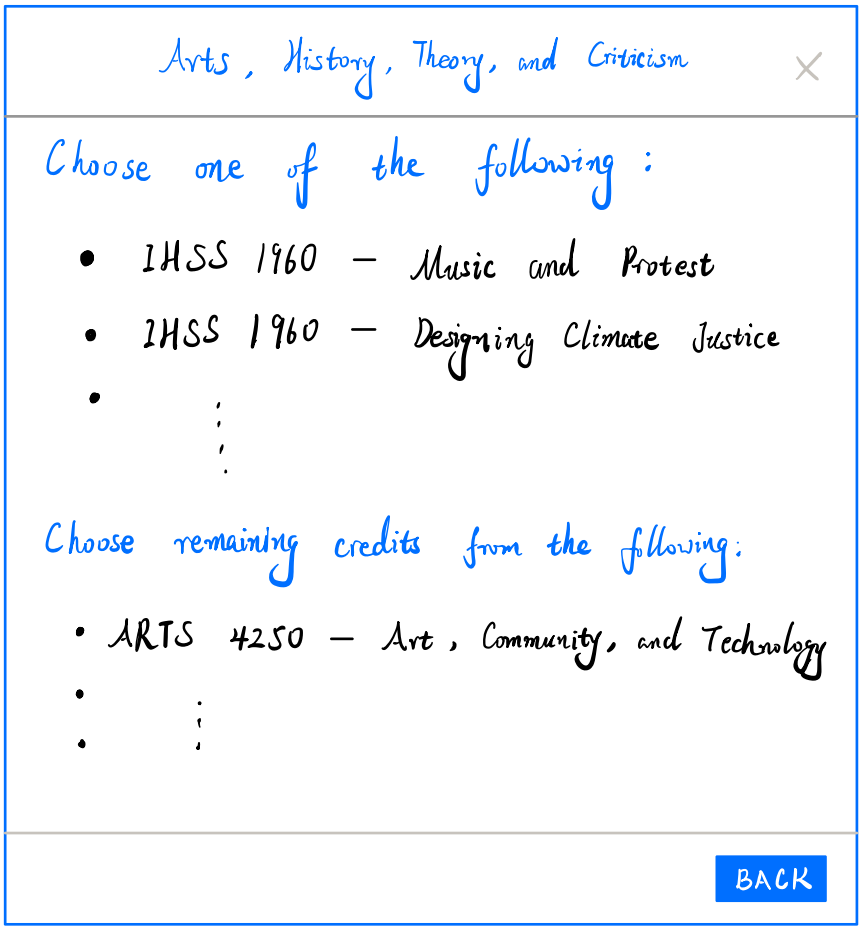 Arts, History, Theory, and Criticism
Choose one of the following:
• IHSS 1960 – Music and Protest
• IHSS 1960 – Designing Climate Justice
•
Choose remaining credits from the following:
• ARTS 4250 – Art, Community, and Technology
•
•
BACK